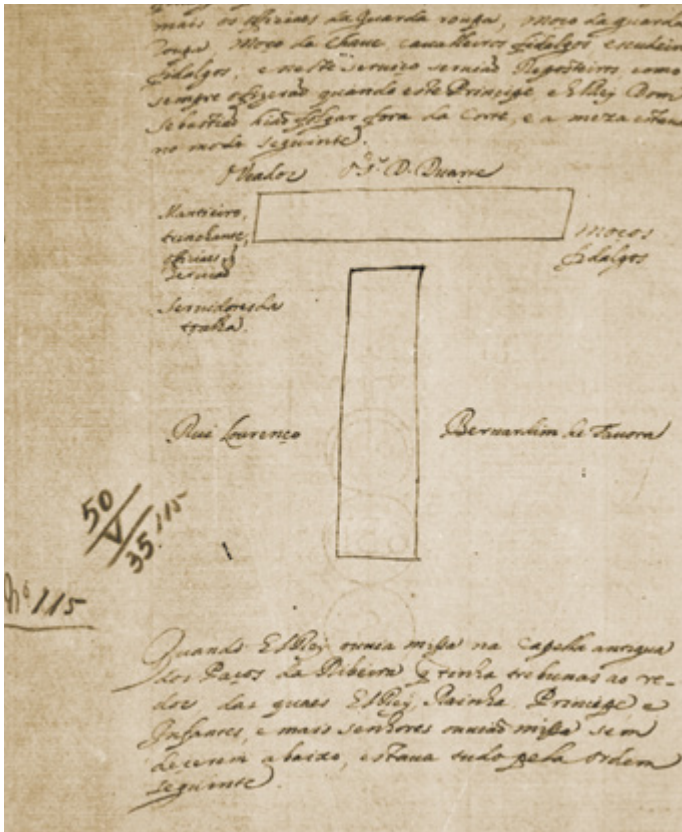 mais os officiaes da Guarda roupa, Moço da guarda
roupa, Moço da Chave, cavalleiros fidalgos escudeiros
fidalgos, e neste serviço serviaõ Reposteiros como
sempre o fizeraõ quando este Principe, e ElRey Dom
Sebastiaõ hiaõ folgar fora da Corte, e a meza estava
no modo seguinte.
O Veador O Sr. D. Duarte
Mantieiro,
trinchante,
officiaes q̃
serviaõ
Moços
fidalgos
Servidores da
toalha.
Rui Lourenço Bernardim de Tavora
50
V
35. 115
Nº 115
Quando ElRey ouvia missa na Capella antigua
dos Paços da Ribeira q̃ tinha tribunas ao re-
dor das quaes ElRey, Rainha, Principe e
Infantes, e mais senhores ouviaõ missa sem
decerem abaixo, estava tudo pela ordem
seguinte.